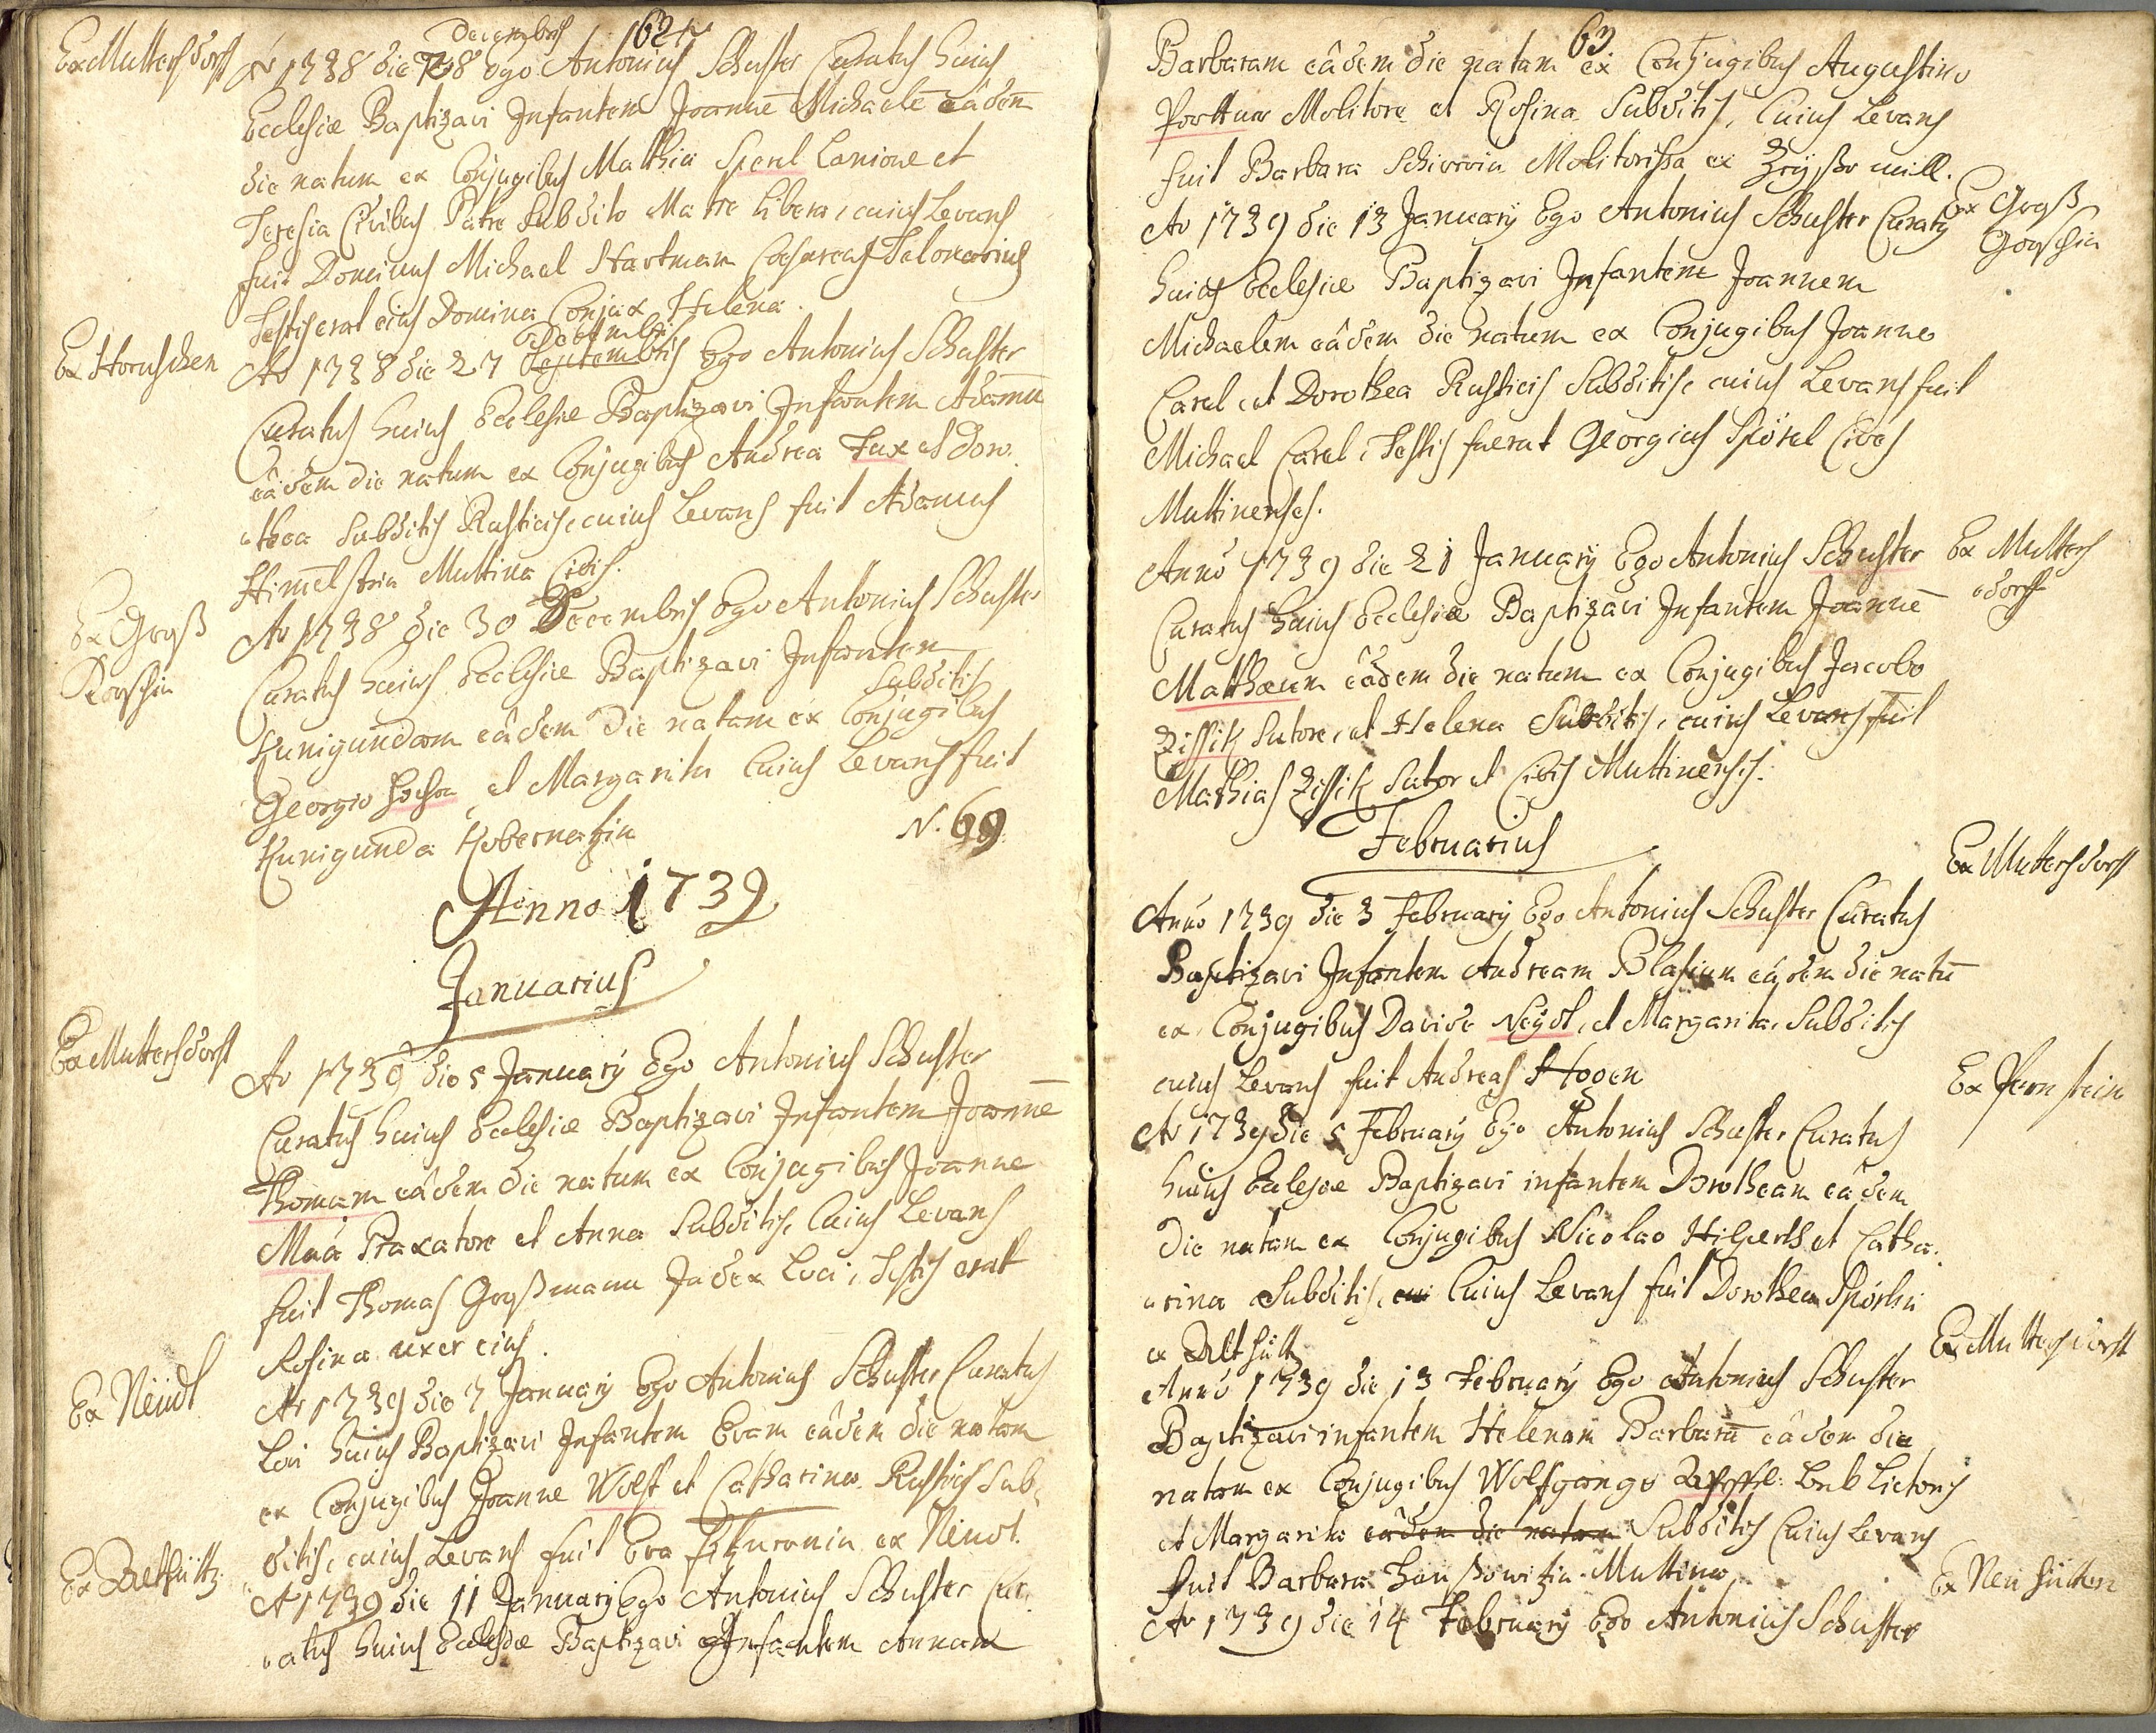 62
Decembris
Ex Muttersdorff
Ao 1738 die 8 Ego Antonius Schuster Curatus huius
Ecclesiæ Baptizavi Infantem Joannē Michaelē eâdem
die natum ex Conjugibus Mathia Sperl Lanione et
Teresia Civibus Patre Subdito Matre libera, cuius Levans
fuit Dominus Michael Hartman Cæsareus Telonearius
Testis erat eius Domina Conjux Helena.
Ex Horuschen
Decembris
Ao 1738 die 27 Septembris Ego Antonius Schuster
Curatus huius Ecclesiæ Baptizavi Infantem Adamū
eâdem die natum ex Conjugibus Andrea Fux et Doro
thea Subditis Rusticis, cuius Levans fuit Adamus
Himelstein Muttina Civis.
Ex Groß
Gorschin
Ao 1738 die 30 Decembris Ego Antonius Schuster
Curatus huius Ecclesiæ Baptizavi Infantem
Subditis
Kunigundam eâdem die natam ex Conjugibus
Georgio et Margarita Cuius Levans fuit
Kunigunda
N. 69
Anno 1739
Januarius
Ex Muttersdorff
Ao 1739 die 5 January Ego Antonius Schuster
Curatus huius Ecclesiæ Baptizavi Infantem Joannē
Thomam eâdem die natum ex Conjugibus Joanne
Praxatore et Anna Subditis, Cuius Levans
fuit Thomas Großmann Judex Loci, Testis erat
Rosina uxor eius.
Ex Neudl
Ao 1739 die 7 January Ego Antonius Schuster Curatus
Loci huius Baptizavi Infantem Evam eâdem die natam
ex Conjugibus Joanne Wolff et Catharina Rusticis Sub
ditis, cuius Levans fuit Eva ex Neudl.
Ex Althüttn
Ao 1739 die 11 January Ego Antonius Schuster Cur
atus huius Ecclesiæ Baptizavi Infantem Annam
63
Barbaram eâdem die natam ex Conjugibus Augustino
Molitore et Rosina Subditis, Cuius Levans
fuit Barbara Molitorissa ex mill.
Ex Groß
Gorschin
Ao 1739 die 13 January Ego Antonius Schuster Curatus
huius Ecclesiæ Baptizavi Infantem Joannem
Michaelem eâdem die natum ex Conjugibus Joanne
Carel et Dorothea Rusticis Subditis, cuius Levans fuit
Michael Carel, Testis fuerat Georgius Spörl Cives
Muttinenses.
Ex Mutters
dorff
Anno 1739 die 21 January Ego Antonius Schuster
Curatus huius Ecclesiæ Baptizavi Infantem Joannē
Matthæum eâdem die natum ex Conjugibus Jacobo
Zissik Sutore, et Helena Subditis, cuius Levans fuit
Mathias Zissik Sutor et Civis Muttinensis.
Februarius
Ex Muttersdorff
Anno 1739 die 3 February Ego Antonius Schuster Curatus
Baptizavi Infantem Andream Blasium eâdem die natū
ex Conjugibus Davide Neydl, et Margarita Subditis
cuius Levans fuit Andreas Hogen
Ex Pernstein
Ao 1739 die 5 February Ego Antonius Schuster Curatus
huius Eclesiæ Baptizavi infantem Dorotheam eâdem
die natam ex Conjugibus Nicolao Hilperth et Catha
rina Subditis, cui Cuius Levans fuit Dorothea Spörlin
ex Althüttn
Ex Muttersdorff
Anno 1739 die 13 February Ego Antonius Schuster
Baptizavi infantem Helenam Barbarā eâdem die
natam ex Conjugibus Wolfgango
et Margarita eâdem die natam Subditis Cuius Levans
fuit Barbara Muttina
Ex Neu hütten
Ao 1739 die 14 February Ego Antonius Schuster